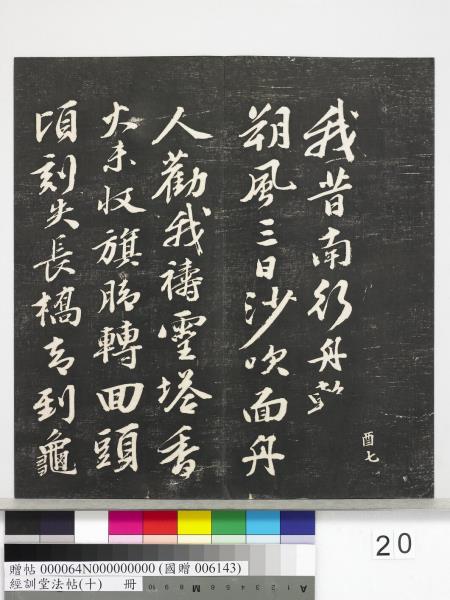 我昔南行舟
朔風三日沙吹面舟
人勸我禱靈塔香
火未收旗脚轉回頭
頃刻失長橋却到龜
酉七
20
贈帖 000064N000000000 (國贈 006143)
經訓堂法帖(十) 冊